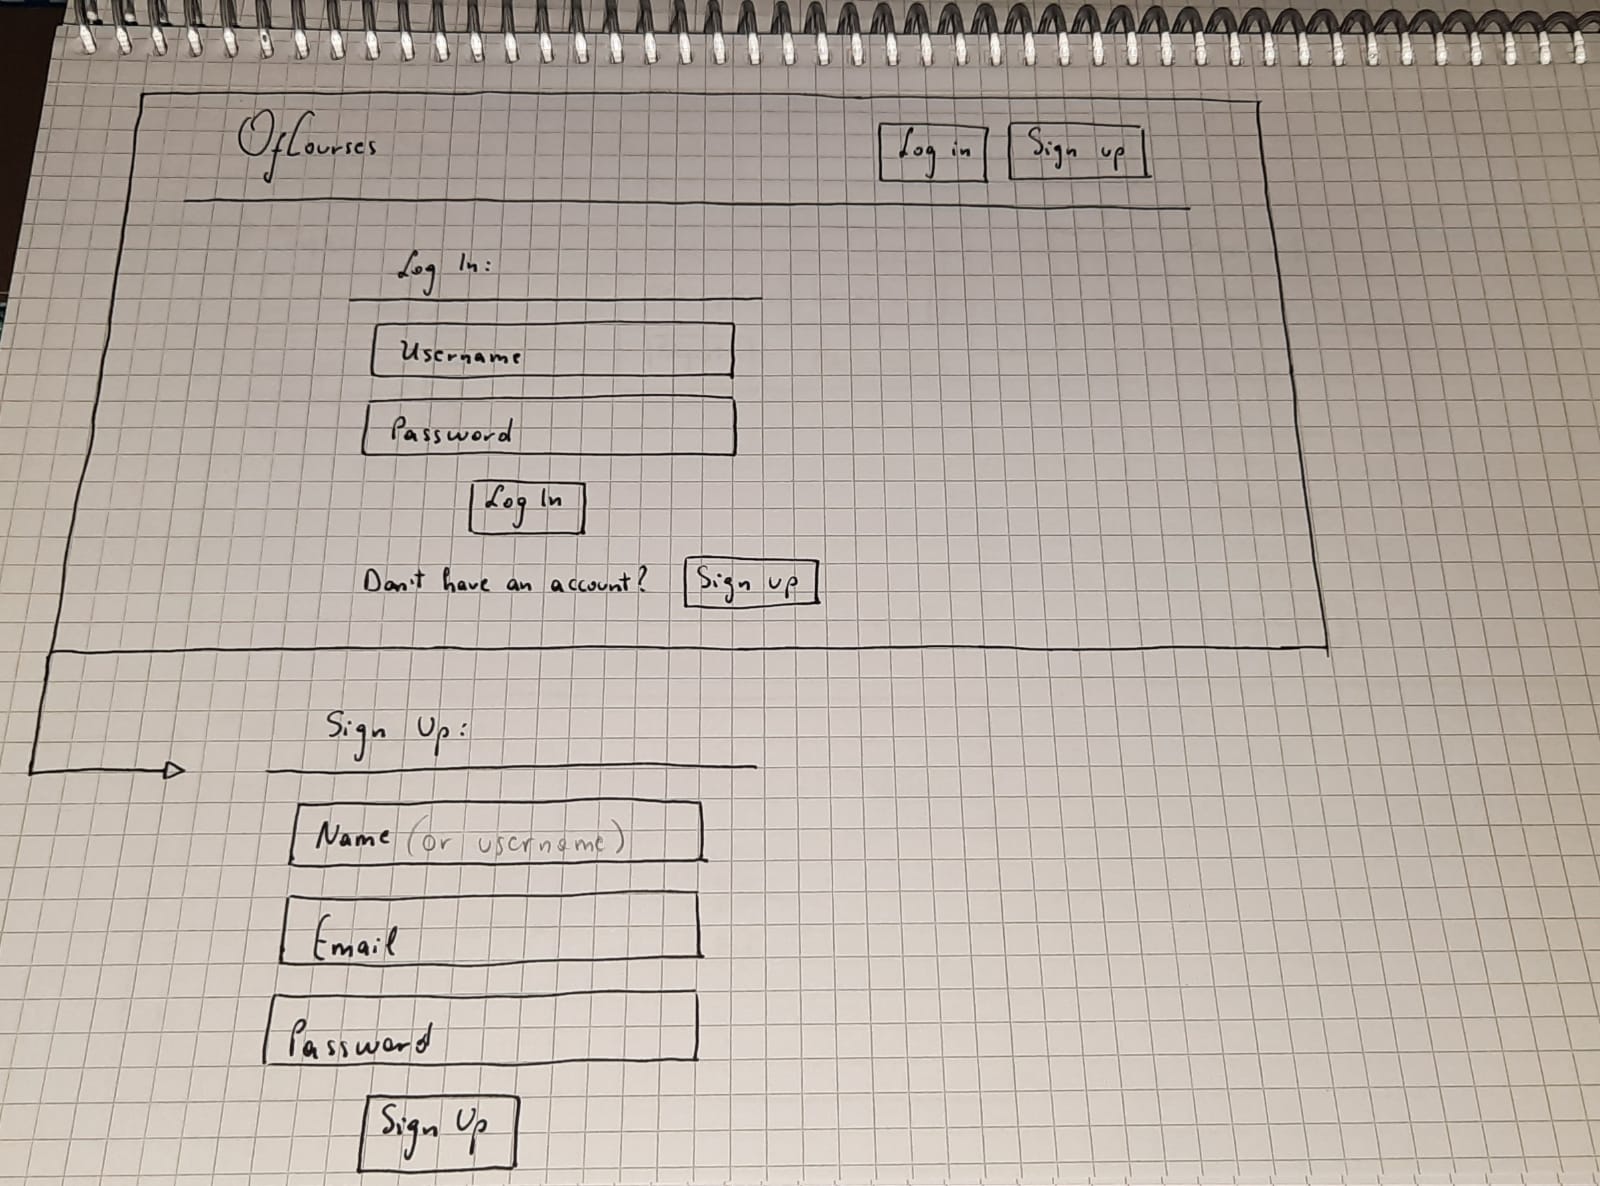 OfCourses Log in Sign up
Log In:
Username
Password
Log In
Don't have an account? Sign up
Sign Up:
Name (or username)
Email
Password
Sign Up